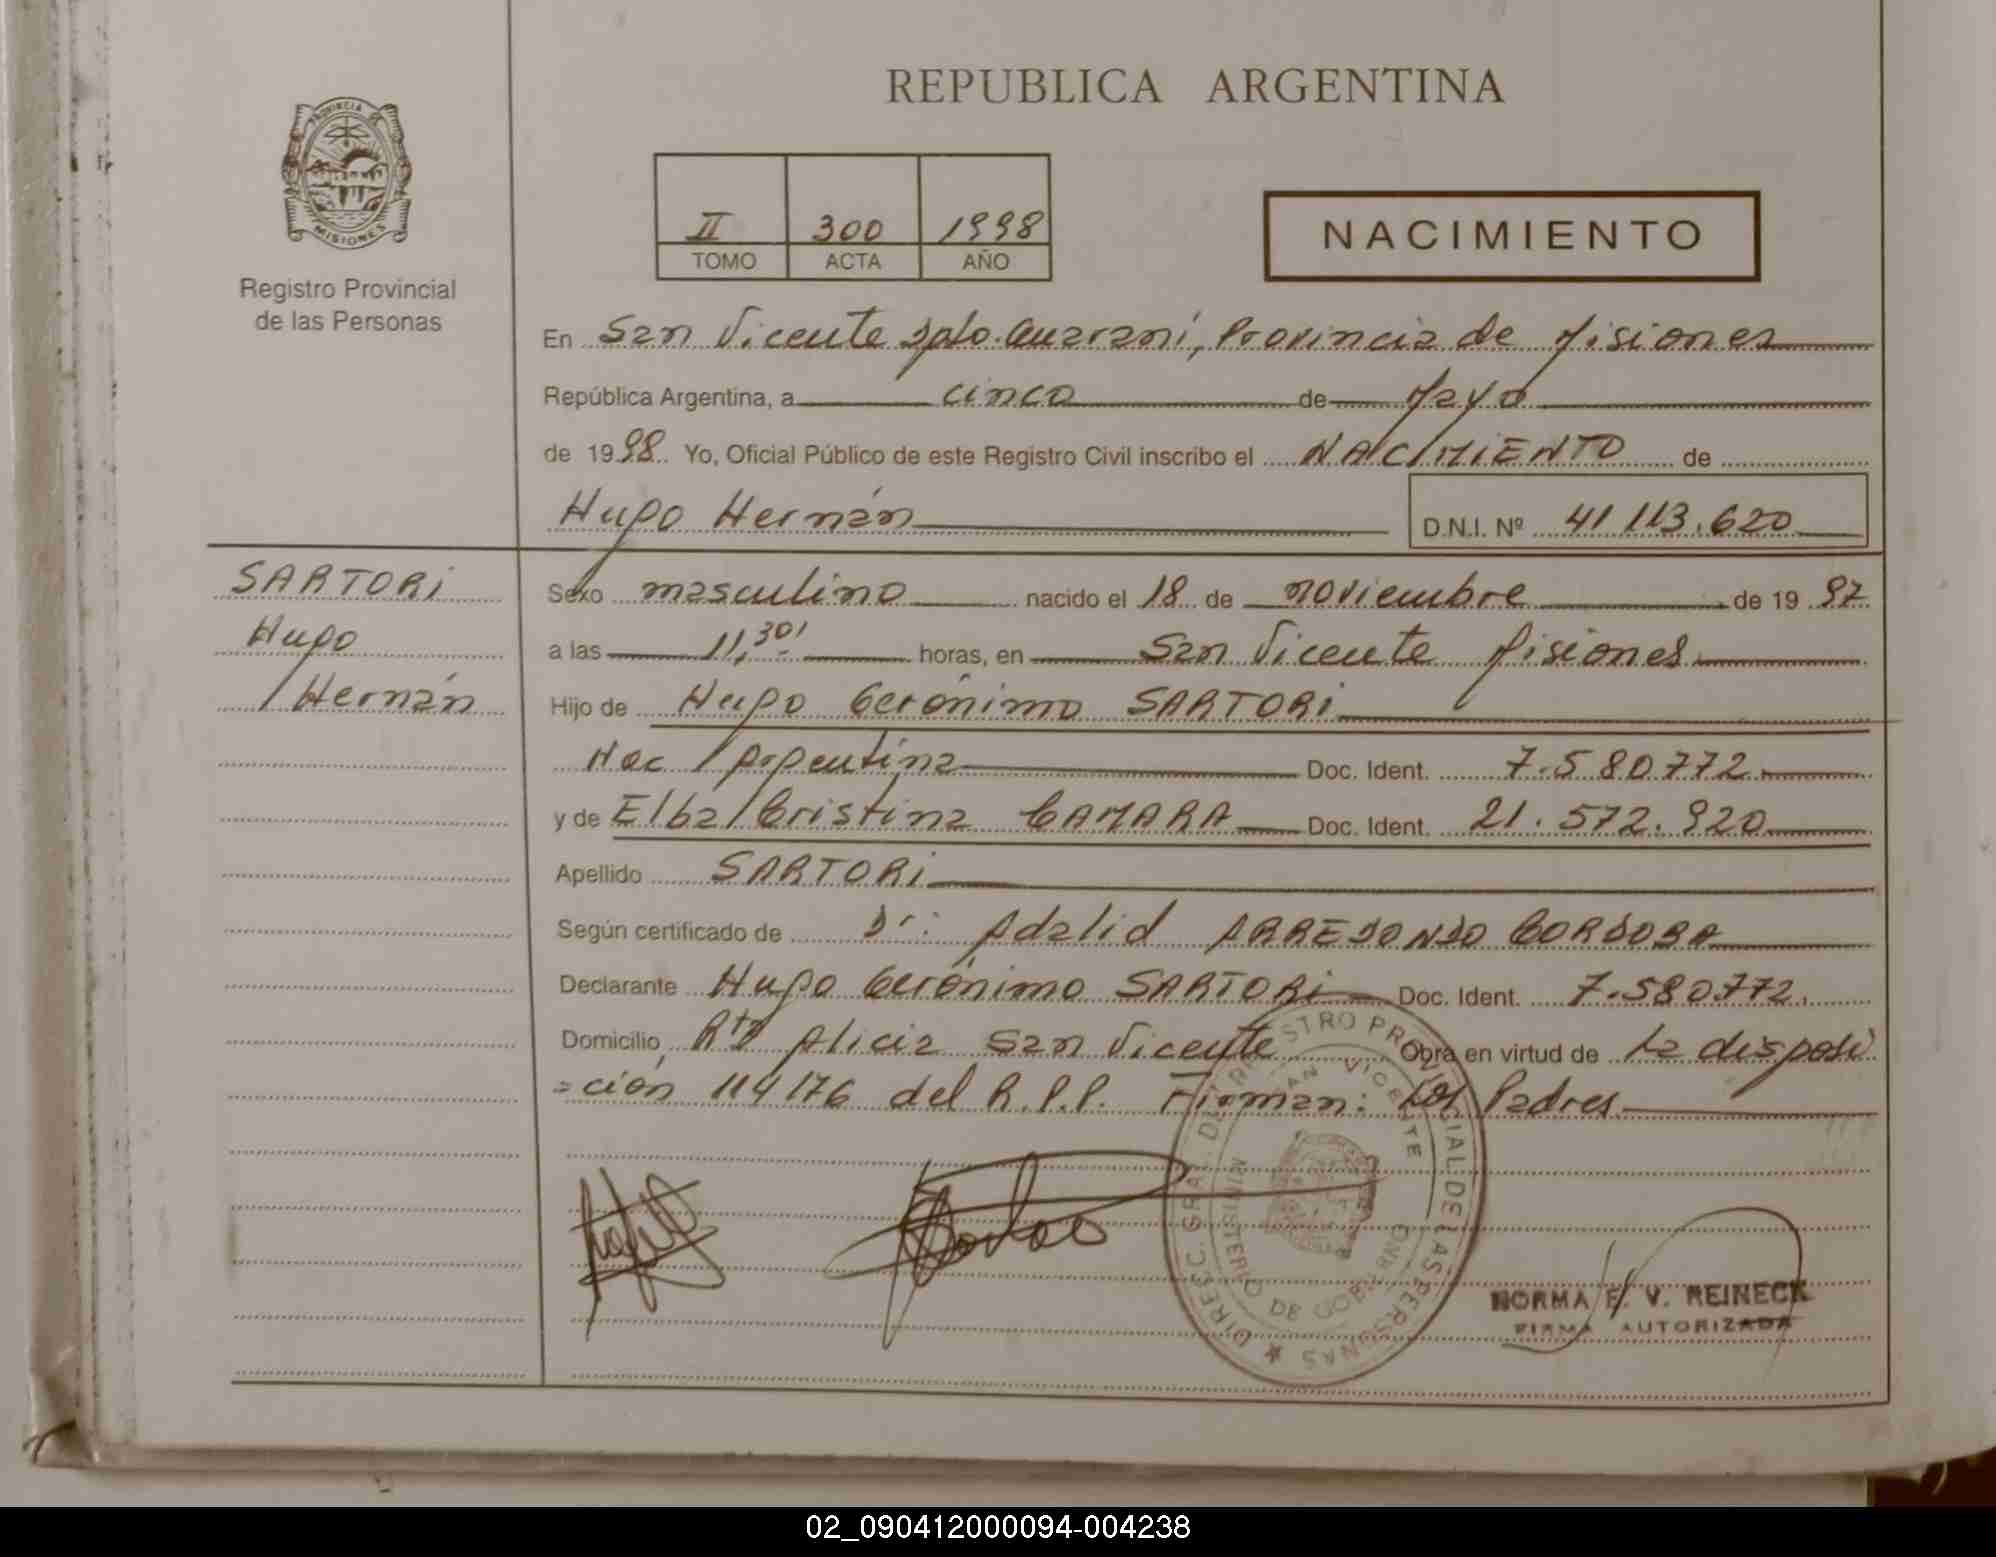 REPUBLICA ARGENTINA
PROVINCIA DE
MISIONES
Registro Provincial
de las Personas
II 300 1998
TOMO ACTA AÑO
NACIMIENTO
En San Vicente Dpto. Guaraní, Provincia de Misiones
República Argentina, a cinco de Mayo
de 1998 Yo, Oficial Público de este Registro Civil inscribo el NACIMIENTO de
Hugo Hernán D.N.I. Nº 41 113.620
SARTORI
Hugo
Hernán
Sexo masculino nacido el 18 de noviembre de 1997
a las 11,30' horas, en San Vicente Misiones
Hijo de Hugo Gerónimo SARTORI
Nac Argentina Doc. Ident. 7.580772
y de Elba Cristina CAMARA Doc. Ident. 21.572.920
Apellido SARTORI
Según certificado de Dr: Adalid ARREDONDO CORDOBA
Declarante Hugo Gerónimo SARTORI Doc. Ident. 7.580772.
Domicilio Rta Alicia San Vicente Obra en virtud de La disposi
=ción 114176 del R.P.P. Firman: Los Padres
DIREC. GRAL. DEL REGISTRO PROVINCIAL DE LAS PERSONAS
SAN VICENTE
MINISTERIO DE GOBIERNO
NORMA E. V. REINECK
FIRMA AUTORIZADA
02_090412000094-004238